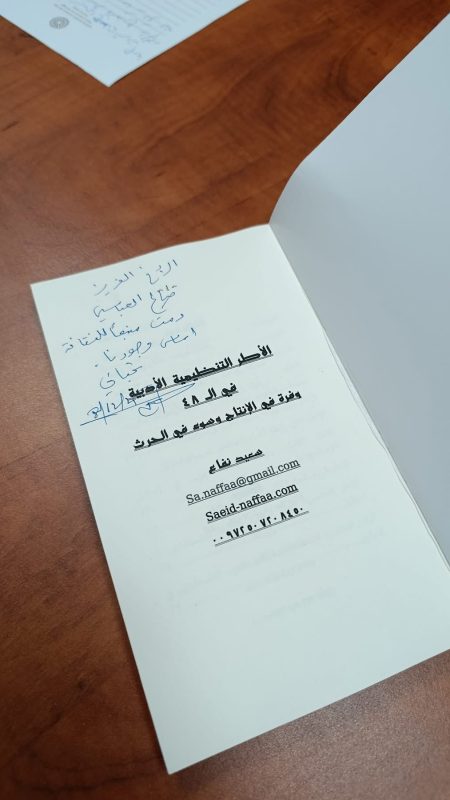 الأخ العزيز
العباسي
دمت للثقافة
وجودنا.
تحياتي
الأطر التنظيمية الأدبية
في الـ ٤٨
وفرة في الإنتاج وسوء في الحرث
سعيد نفاع
Sa.naffaa@gmail.com
Saeid-naffaa.com
٠٠٩٧٢٥٠٧٢٠٨٤٥٠